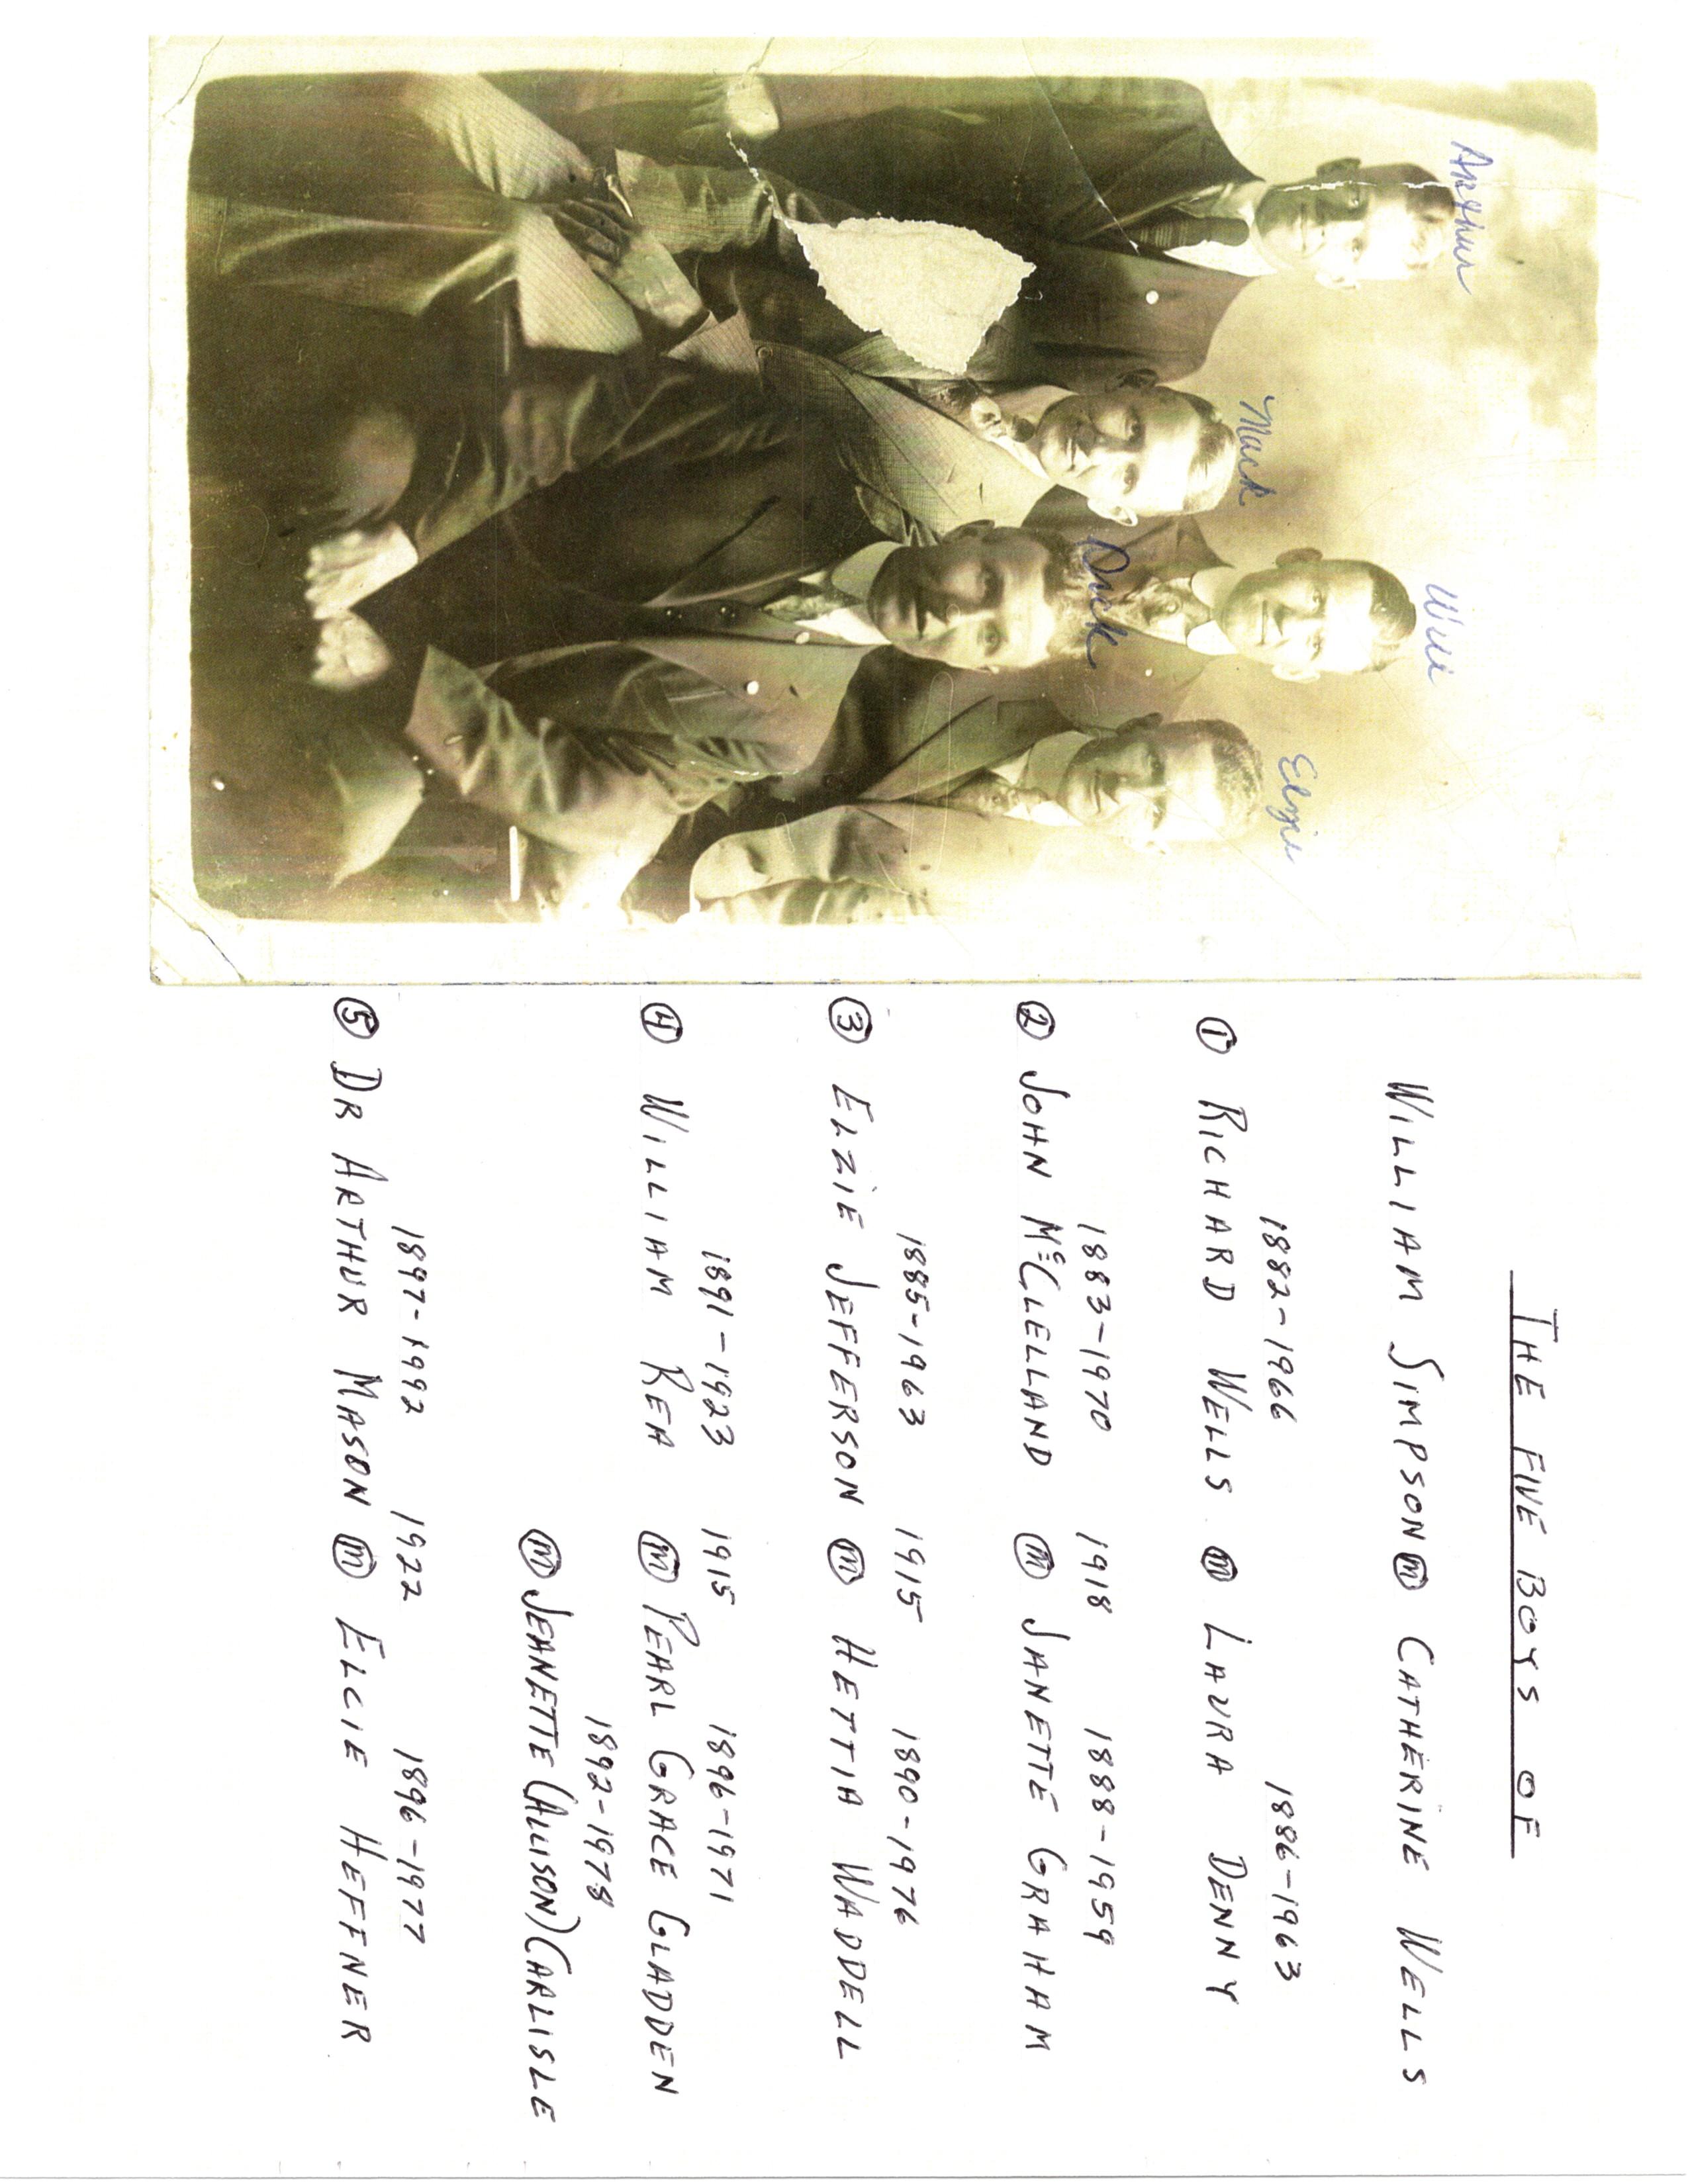 Arthur
Mack
Will
Dick
Elzie
THE FIVE BOYS OF
WILLIAM SIMPSON ⓜ CATHERINE WELLS
1882-1966 1886-1963
① RICHARD WELLS ⓜ LAURA DENNY
1883-1970 1918 1888-1959
② JOHN McCLELLAND ⓜ JANETTE GRAHAM
1885-1963 1915 1890-1976
③ ELZIE JEFFERSON ⓜ HETTIA WADDELL
1891-1923 1915 1896-1971
④ WILLIAM REA ⓜ PEARL GRACE GLADDEN
1892-1978
ⓜ JEANETTE (ALLISON) CARLISLE
1897-1992 1922 1896-1977
⑤ DR ARTHUR MASON ⓜ ELCIE HEFFNER